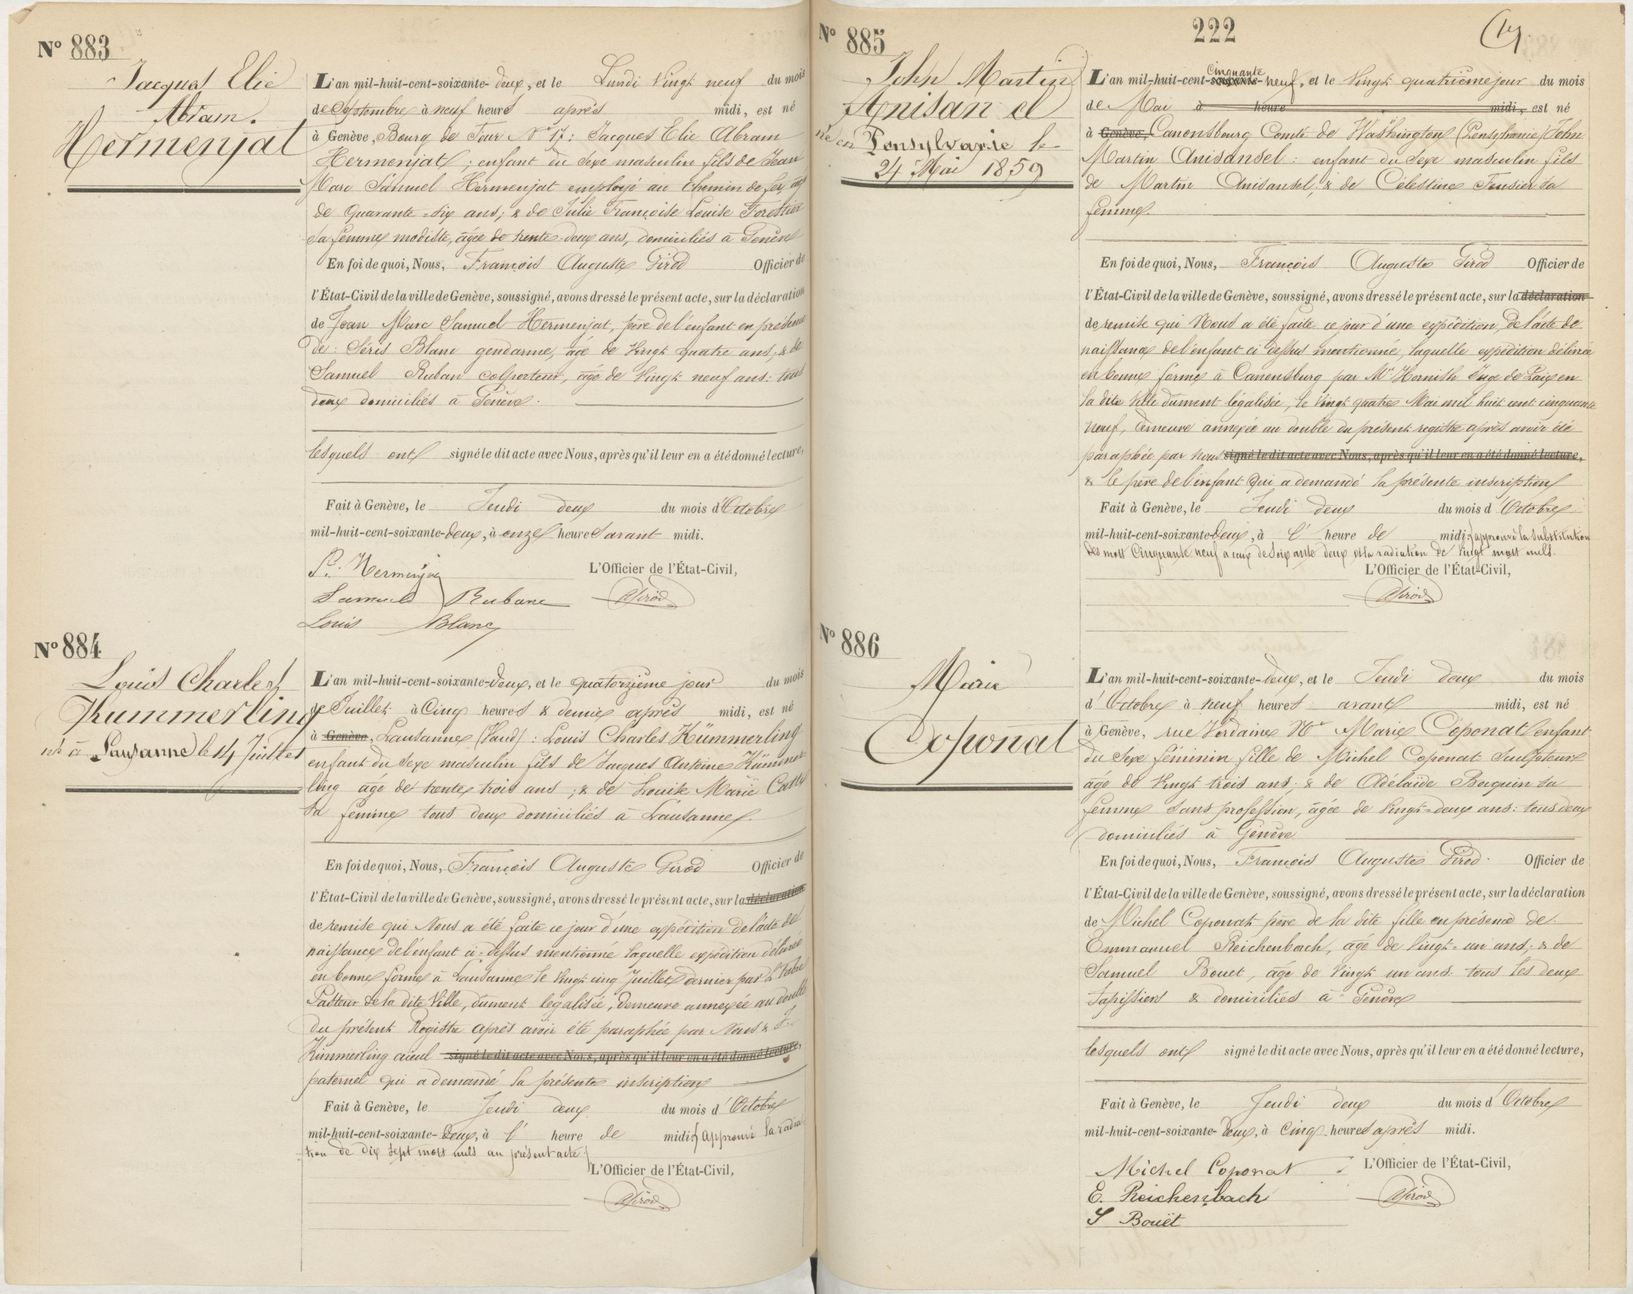 Nº 883
Jacques Elie
Abram.
Hermenjat
L'an mil-huit-cent-soixante-deux, et le Lundi vingt neuf du mois
de Septembre à neuf heures après midi, est né
à Genève, Bourg de Four Nº 17: Jacques Elie Abram
Hermenjat; enfant du sexe masculin fils de Jean
Marc Samuel Hermenjat employé au Chemin de fer âgé
de quarante-six ans; & de Julie Françoise Louise Forestier
sa femme modiste, âgée de trente deux ans, domiciliés à Genève
En foi de quoi, Nous, François Auguste Girod Officier de
l'État-Civil de la ville de Genève, soussigné, avons dressé le présent acte, sur la déclaration
de Jean Marc Samuel Hermenjat, père de l'enfant en présence
de: Blanc gendarme, âgé de vingt quatre ans, & de
Samuel Ruban colporteur, âgé de vingt neuf ans. tous
deux domiciliés à Genève.
lesquels ont signé le dit acte avec Nous, après qu'il leur en a été donné lecture,
Fait à Genève, le Jeudi deux du mois d'Octobre
mil-huit-cent-soixante-deux, à onze heures avant midi.
L'Officier de l'État-Civil,
Hermenjat
Samuel Rubane AGirod
Louis Blanc
Nº 884
Louis Charles
Kummerling
né à Lausanne le 14 Juillet
L'an mil-huit-cent-soixante-deux, et le quatorzième jour du mois
de Juillet à cinq heures & demie après midi, est né
à Genève, Lausanne (Vaud): Louis Charles Kümmerling
enfant du sexe masculin fils de Jacques Antoine Kümmer-
ling âgé de trente trois ans; & de Louise Marie
sa femme tous deux domiciliés à Lausanne.
En foi de quoi, Nous, François Auguste Girod Officier de
l'État-Civil de la ville de Genève, soussigné, avons dressé le présent acte, sur la déclaration
de remise qui Nous a été faite ce jour d'une expédition de l'acte de
naissance de l'enfant ci-dessus mentionné laquelle expédition délivrée
en bonne forme à Lausanne le vingt cinq Juillet dernier par
Pasteur de la dite Ville, dument légalisée, demeure annexée au double
du présent Registre après avoir été paraphée par Nous & J.
Kümmerling aieul signé le dit acte avec Nous, après qu'il leur en a été donné lecture,
paternel qui a demandé la présente inscription
Fait à Genève, le Jeudi deux du mois d'Octobre
mil-huit-cent-soixante-deux, à l' heure de midi (approuvé la radia-
tion de dix sept mots nuls au présent acte)
L'Officier de l'État-Civil,
AGirod
222
Nº 885
John Martin
Anisansel
né en Pensylvanie le
24 Mai 1859
L'an mil-huit-cent-soixante- Cinquante neuf, et le vingt quatrième jour du mois
de Mai à heure midi, est né
à Genève, Canonsbourg Comté de Washington (Pensylvanie) John
Martin Anisansel: enfant du sexe masculin fils
de Martin Anisansel, & de Célestine Tensier sa
femme.
En foi de quoi, Nous, François Auguste Girod Officier de
l'État-Civil de la ville de Genève, soussigné, avons dressé le présent acte, sur la déclaration
de remise qui Nous a été faite ce jour d'une expédition, de l'acte de
naissance de l'enfant ci-dessus mentionné, laquelle expédition délivrée
en bonne forme à Canonsburg par Mr Hornish Juge de Paix en
la dite ville dument légalisée, le vingt quatre Mai mil huit cent cinquante
neuf, demeure annexée au double du présent registre après avoir été
paraphée par nous signé le dit acte avec Nous, après qu'il leur en a été donné lecture,
& le père de l'enfant qui a demandé la présente inscription
Fait à Genève, le Jeudi deux du mois d'Octobre
mil-huit-cent-soixante-deux, à l' heure de midi (approuvé la substitution
des mots Cinquante neuf à ceux de soixante deux et la radiation de vingt mots nuls.
L'Officier de l'État-Civil,
AGirod
Nº 886
Marie
Coponat
L'an mil-huit-cent-soixante-deux, et le Jeudi deux du mois
d'Octobre à neuf heures avant midi, est né
à Genève, rue Verdaine Marie Coponat enfant
du sexe féminin fille de Michel Coponat Sculpteur
âgé de vingt trois ans, & de Adélaïde Boquin sa
femme sans profession, âgée de vingt-deux ans: tous deux
domiciliés à Genève
En foi de quoi, Nous, François Auguste Girod. Officier de
l'État-Civil de la ville de Genève, soussigné, avons dressé le présent acte, sur la déclaration
de Michel Coponat père de la dite fille en présence de
Emmanuel Reichenbach, âgé de vingt-un ans, & de
Samuel Bouet, âgé de vingt un ans. tous les deux
tapissiers & domiciliés à Genève
lesquels ont signé le dit acte avec Nous, après qu'il leur en a été donné lecture,
Fait à Genève, le Jeudi deux du mois d'Octobre
mil-huit-cent-soixante-deux, à cinq heures après midi.
Michel Coponat L'Officier de l'État-Civil,
E. Reichenbach AGirod
S Bouët